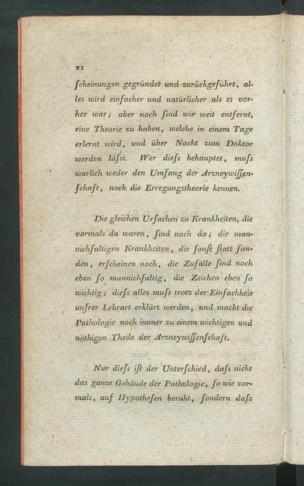 VI
ſcheinungen gegründet und zurückgeführt, al-
les wird einfacher und natürlicher als es vor-
her war; aber noch ſind wir weit entfernt,
eine Theorie zu haben, welche in einem Tage
erlernt wird, und über Nacht zum Doktor
werden läſst. Wer dieſs behauptet, muſs
warlich weder den Umfang der Arzneywiſſen-
ſchaft, noch die Erregungstheorie kennen.
Die gleichen Urſachen zu Krankheiten, die
vormals da waren, ſind noch da; die man-
nichfaltigen Krankheiten, die ſonſt ſtatt fan-
den, erſcheinen noch, die Zufälle ſind noch
eben ſo mannichfaltig, die Zeichen eben ſo
wichtig; dieſs alles muſs trotz der Einfachheit
unſrer Lehrart erklärt werden, und macht die
Pathologie noch immer zu einem wichtigen und
nöthigen Theile der Arzneywiſſenſchaft.
Nur dieſs iſt der Unterſchied, daſs nicht
das ganze Gebäude der Pathologie, ſo wie vor-
mals, auf Hypotheſen beruht, ſondern daſs